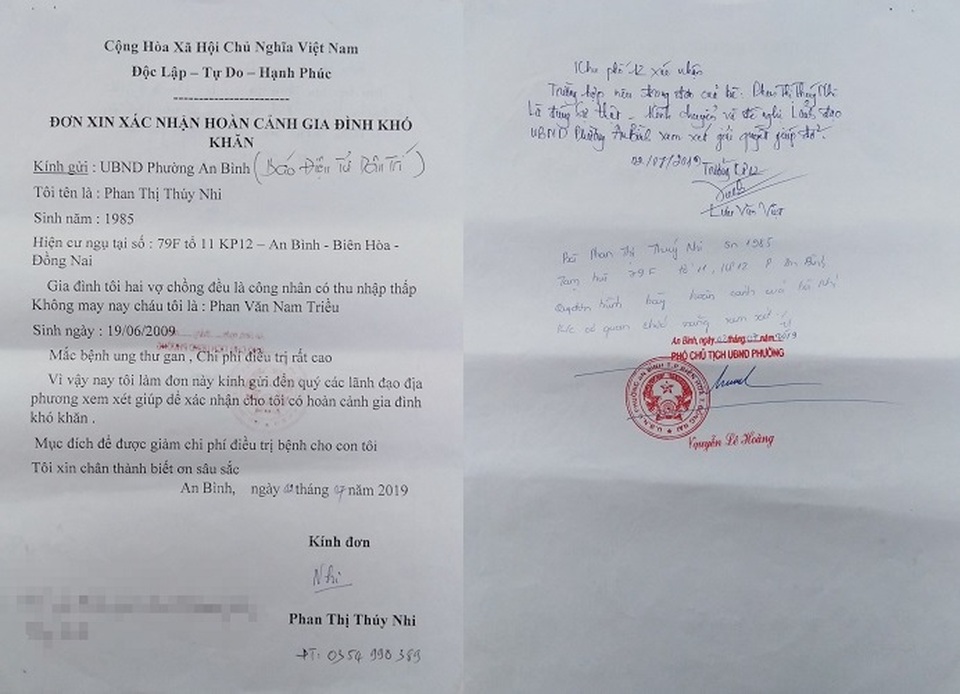 Cộng Hòa Xã Hội Chủ Nghĩa Việt Nam
Độc Lập – Tự Do – Hạnh Phúc
-----------------------
ĐƠN XIN XÁC NHẬN HOÀN CẢNH GIA ĐÌNH KHÓ
KHĂN
Kính gửi : UBND Phường An Bình (Báo Điện Tử Dân Trí)
Tôi tên là : Phan Thị Thúy Nhi
Sinh năm : 1985
Hiện cư ngụ tại số : 79F tổ 11 KP12 – An Bình - Biên Hòa -
Đồng Nai
Gia đình tôi hai vợ chồng đều là công nhân có thu nhập thấp
Không may nay cháu tôi là : Phan Văn Nam Triều
Sinh ngày : 19/06/2009
Mắc bệnh ung thư gan , Chi phí điều trị rất cao
Vì vậy nay tôi làm đơn này kính gửi đến quý các lãnh đạo địa
phương xem xét giúp dể xác nhận cho tôi có hoàn cảnh gia đình
khó khăn .
Mục đích để được giảm chi phí điều trị bệnh cho con tôi
Tôi xin chân thành biết ơn sâu sắc
An Bình, ngày 02 tháng 07 năm 2019
Kính đơn
Nhi
Phan Thị Thúy Nhi
ĐT: 0354 990 389
Khu phố 12 xác nhận
Trường hợp nêu trong đơn của bà: Phan Thị Thúy Nhi
Là đúng sự thật - Kính chuyển và đề nghị Lãnh đạo
UBND Phường An Bình xem xét giải quyết giúp đỡ.
02/07/2019
Trưởng KP12
Lưu Văn Việt
Bà Phan Thị Thuý Nhi sn 1985
Tạm trú 79F tổ 11, KP12 P An Bình
hoàn cảnh bà Nhi
cơ quan chức năng xem xét
An Bình, ngày 02 tháng 07 năm 2019
PHÓ CHỦ TỊCH UBND PHƯỜNG
Nguyễn Lê Hoàng